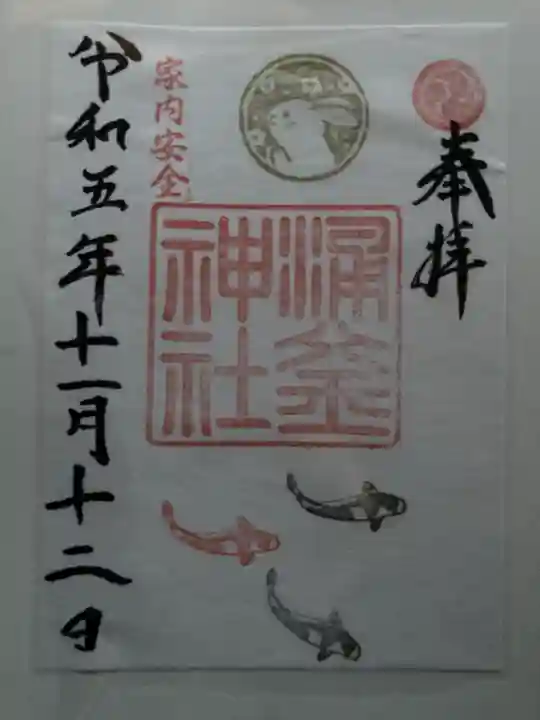 奉拝
涌釜
神社
家内安全
令和五年十一月十二日